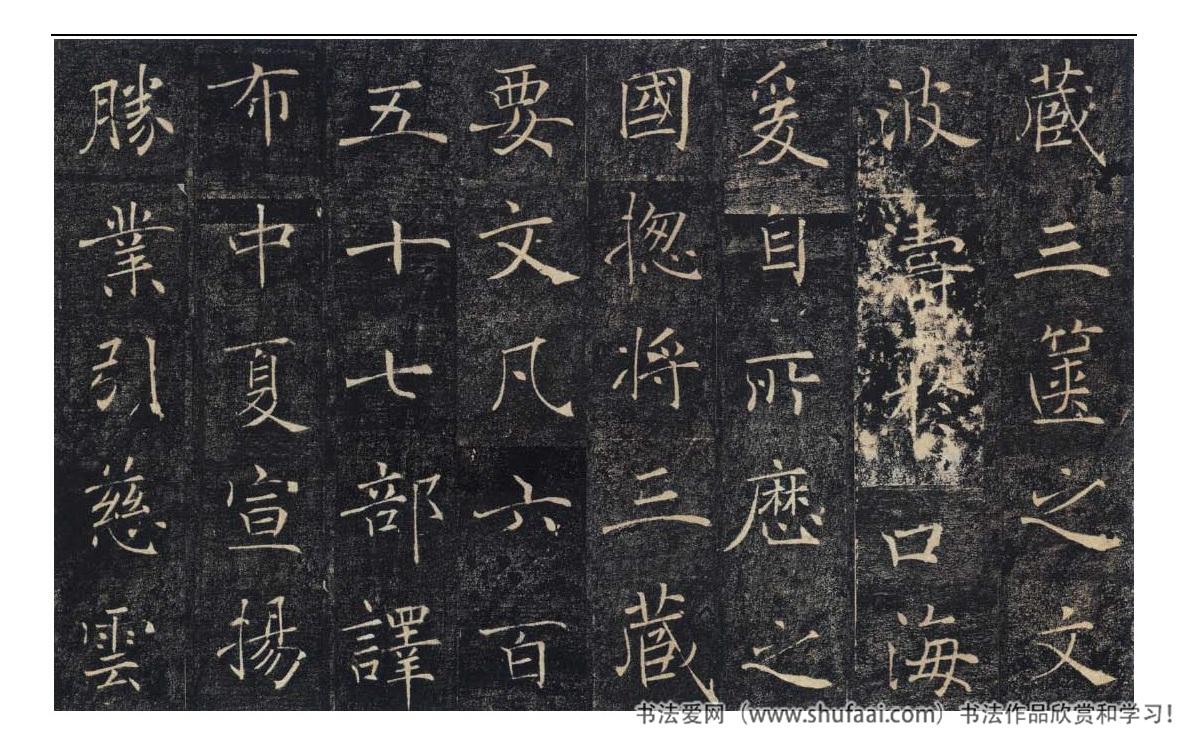 蔵三篋之文
波濤於口海
爰自所歷之
國揔将三蔵
要文凡六百
五十七部譯
布中夏宣揚
勝業引慈雲
书法爱网（www.shufaai.com）书法作品欣赏和学习！